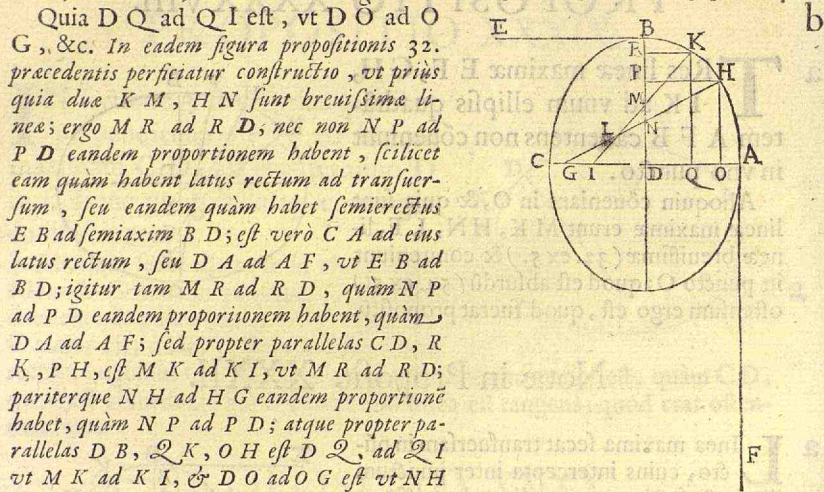 Quia D Q ad Q I est, vt D O ad O
G, &c. In eadem figura propositionis 32.
præcedentis perficiatur constructio, vt priùs
quia duæ K M, H N sunt breuissimæ li-
neæ; ergo M R ad R D, nec non N P ad
P D eandem proportionem habent, scilicet
eam quàm habent latus rectum ad transuer-
sum, seu eandem quàm habet semierectus
E B ad semiaxim B D; est verò C A ad eius
latus rectum, seu D A ad A F, vt E B ad
B D; igitur tam M R ad R D, quàm N P
ad P D eandem proporitonem habent, quàm
D A ad A F; sed propter parallelas C D, R
K, P H, est M K ad K I, vt M R ad R D;
pariterque N H ad H G eandem proportionē
habet, quàm N P ad P D; atque propter pa-
rallelas D B, Q K, O H est D Q, ad Q I
vt M K ad K I, & D O ad O G est vt N H
E
B
K
R
P
H
M
L
N
C
G
I
D
Q
O
A
F
b